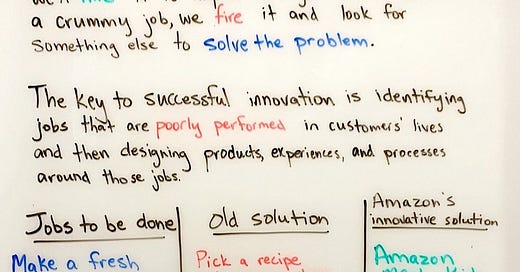 a crummy job, we fire it and look for
something else to solve the problem.
The key to successful innovation is identifying
jobs that are poorly performed in customers' lives
and then designing products, experiences, and processes
around those jobs.
Jobs to be done
Old solution
Amazon's
innovative solution
Make a fresh
Pick a recipe
Amazon